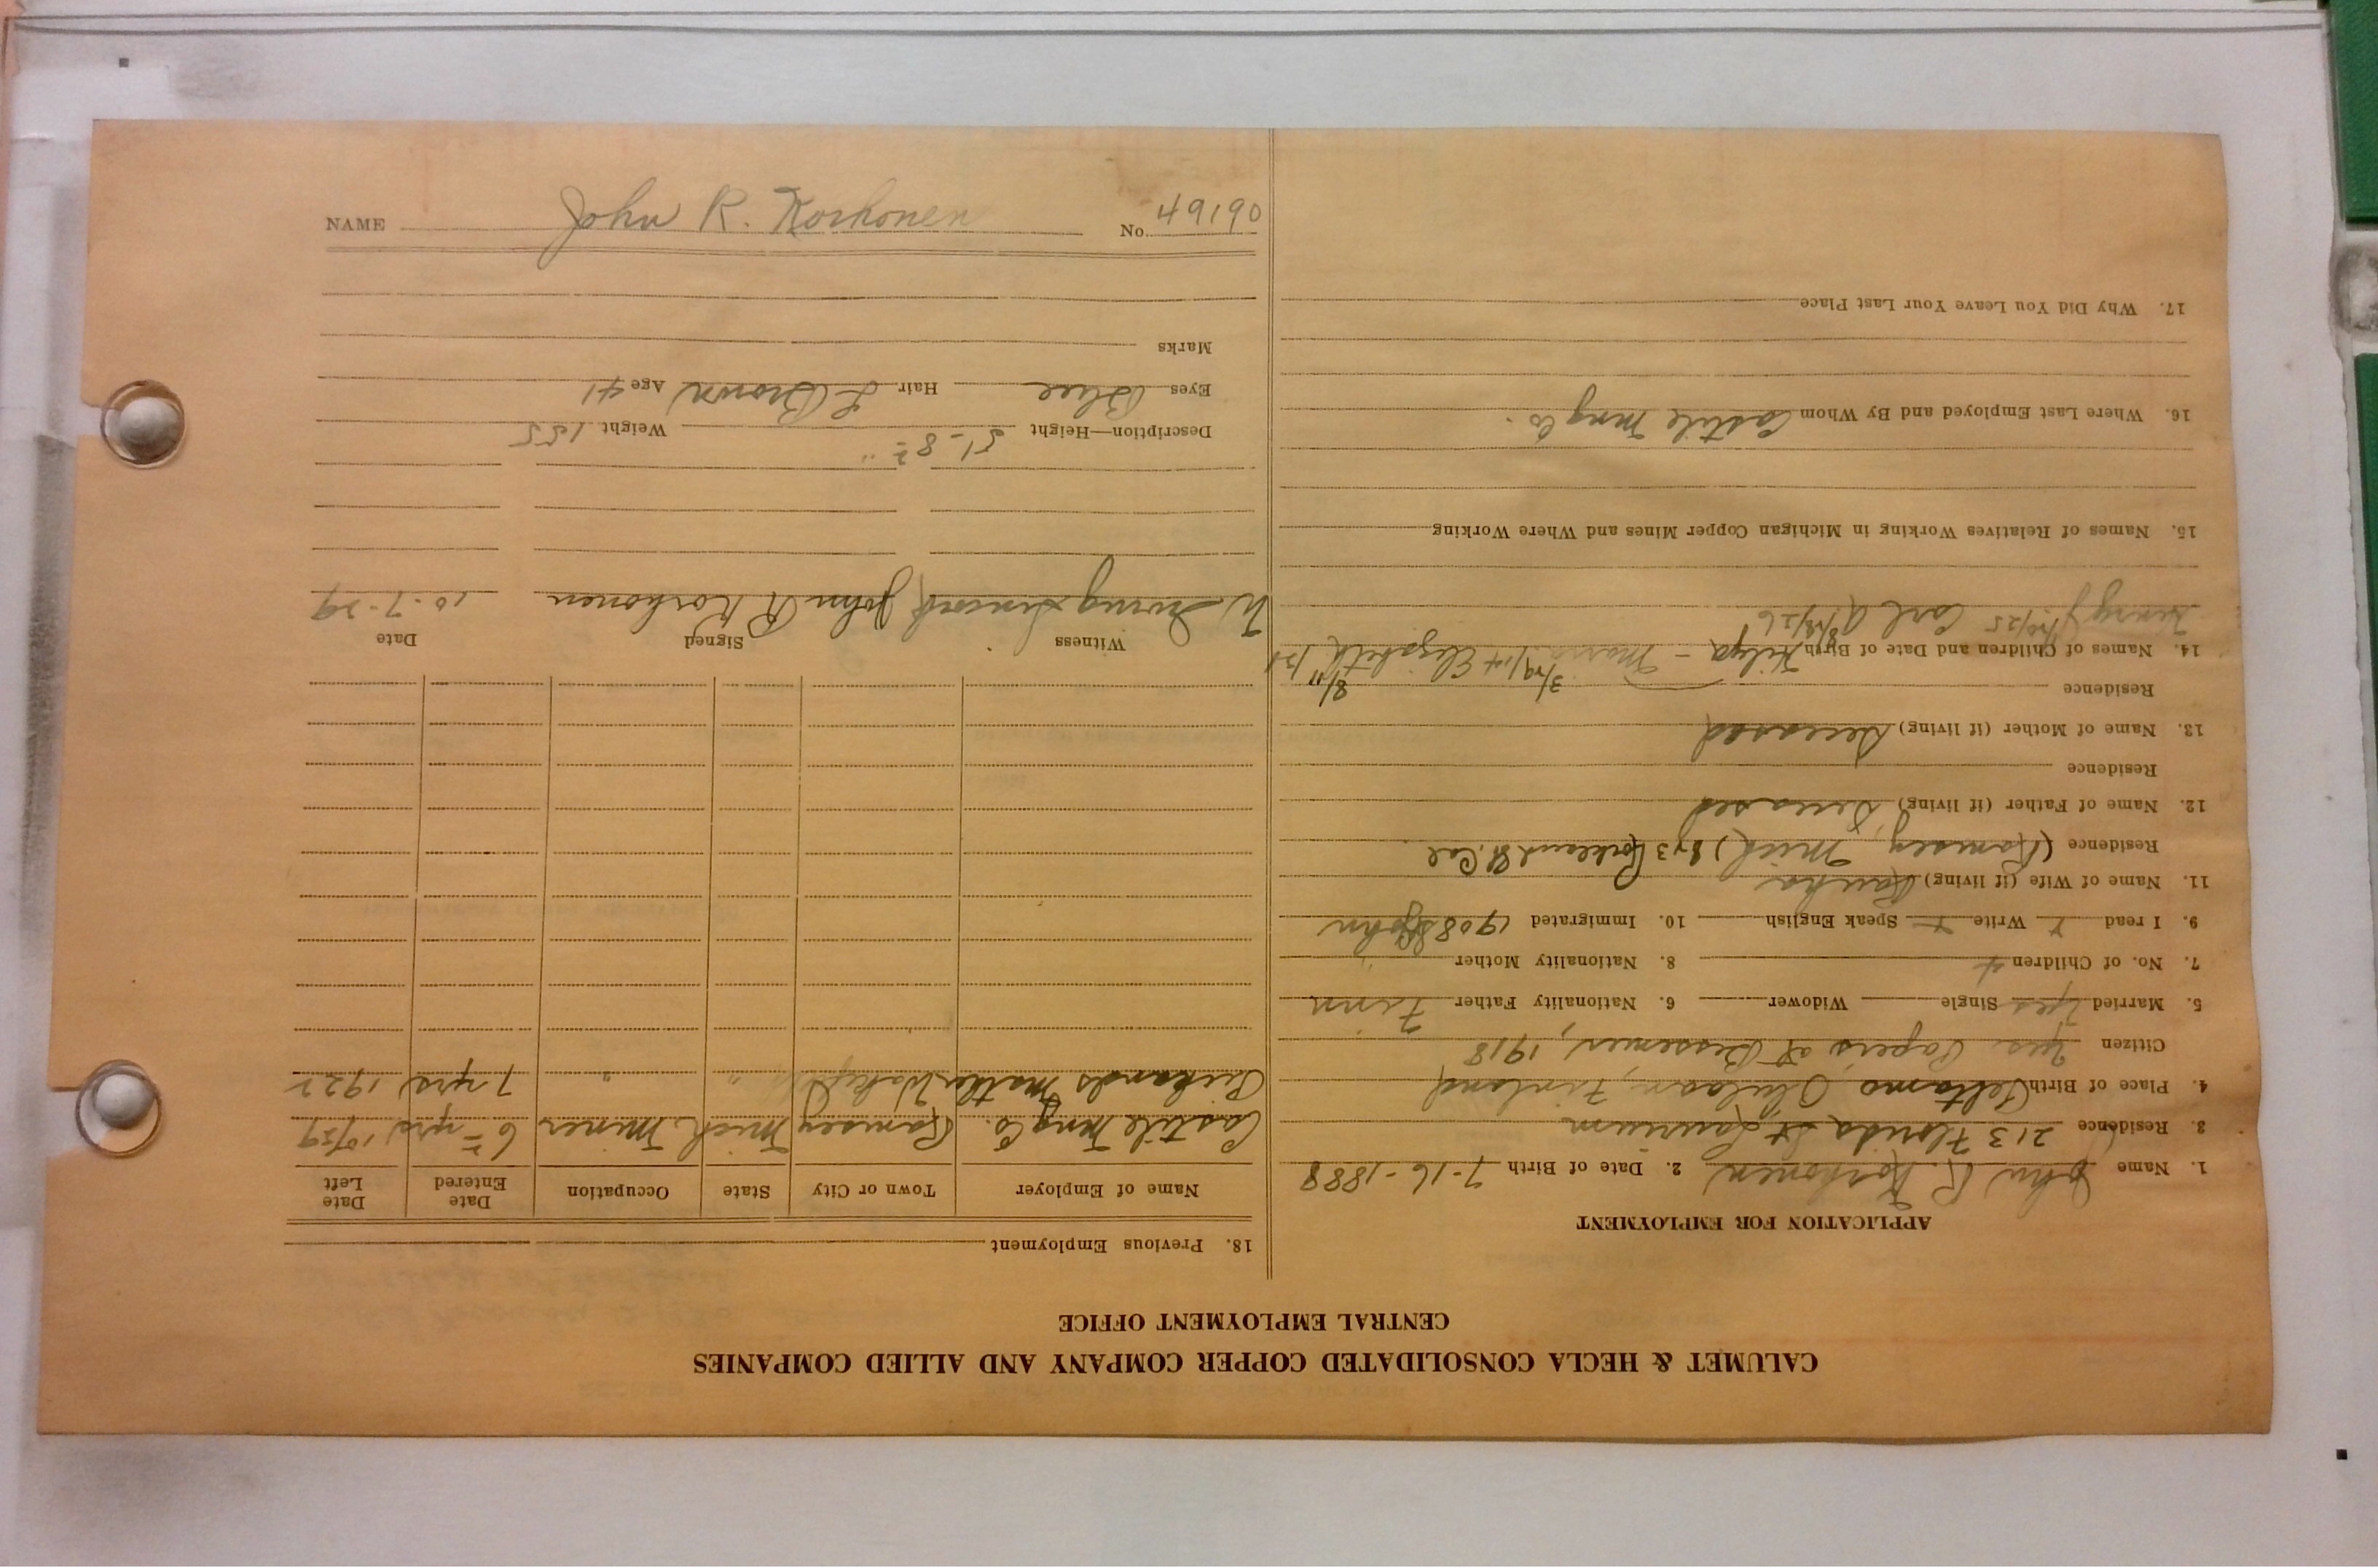 CALUMET & HECLA CONSOLIDATED COPPER COMPANY AND ALLIED COMPANIES
CENTRAL EMPLOYMENT OFFICE
APPLICATION FOR EMPLOYMENT
1. Name John R. Korhonen 2. Date of Birth 7-16-1888
3. Residence 213 Florida St Laurium
4. Place of Birth Peltamo, Finland
Citizen Yes. Papers at Bessemer, 1918
5. Married Yes Single Widower 6. Nationality Father Finn
7. No. of Children 4 8. Nationality Mother "
9. I read Write Speak English 10. Immigrated 1908
11. Name of Wife (if living)
Residence (Ramsey, Mich)
12. Name of Father (if living) Deceased
Residence
13. Name of Mother (if living) Deceased
Residence
14. Names of Children and Date of Birth Hilya - 3/29/14 Elizabeth
Henry Carl
15. Names of Relatives Working in Michigan Copper Mines and Where Working
16. Where Last Employed and By Whom Castile Mng Co.
17. Why Did You Leave Your Last Place
18. Previous Employment
Name of Employer Town or City State Occupation Date Entered Date Left
Castile Mng Co. Ramsey Mich Miner 6 yrs 10/29
Pickands Mather " " 7 yrs 1922
Witness Signed Date
W Irving John R Korhonen 10-7-29
Description—Height 5'-8½" Weight 155
Eyes Blue Hair L Brown Age 41
Marks
NAME John R. Korhonen No. 49190